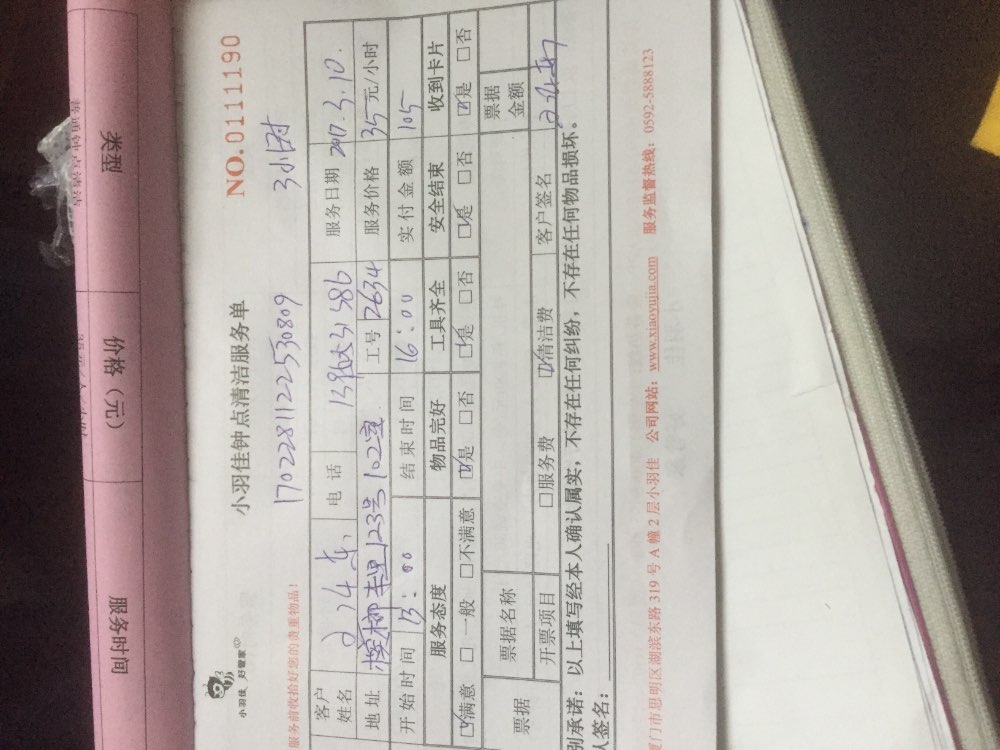 类型
价格（元）
服务时间
普通钟点清洁
小羽佳 好管家
NO.01111190
小羽佳钟点清洁服务单
1702281122530809 3小时
服务前收拾好您的贵重物品！
客户姓名 电话 服务日期 2017.3.10.
地址 123号102室 工号 2634 服务价格 35元/小时
开始时间 13:00 结束时间 16:00 实付金额 105
服务态度 物品完好 工具齐全 安全结束 收到卡片
☑满意 □一般 □不满意 ☑是 □否 ☑是 □否 ☑是 □否 ☑是 □否
票据 票据名称 票据金额
开票项目 □服务费 ☑清洁费 客户签名
别承诺：以上填写经本人确认属实，不存在任何纠纷，不存在任何物品损坏。
人签名：
厦门市思明区湖滨东路 319 号 A 幢 2 层小羽佳 公司网站：www.xiaoyujia.com 服务监督热线：0592-5888123